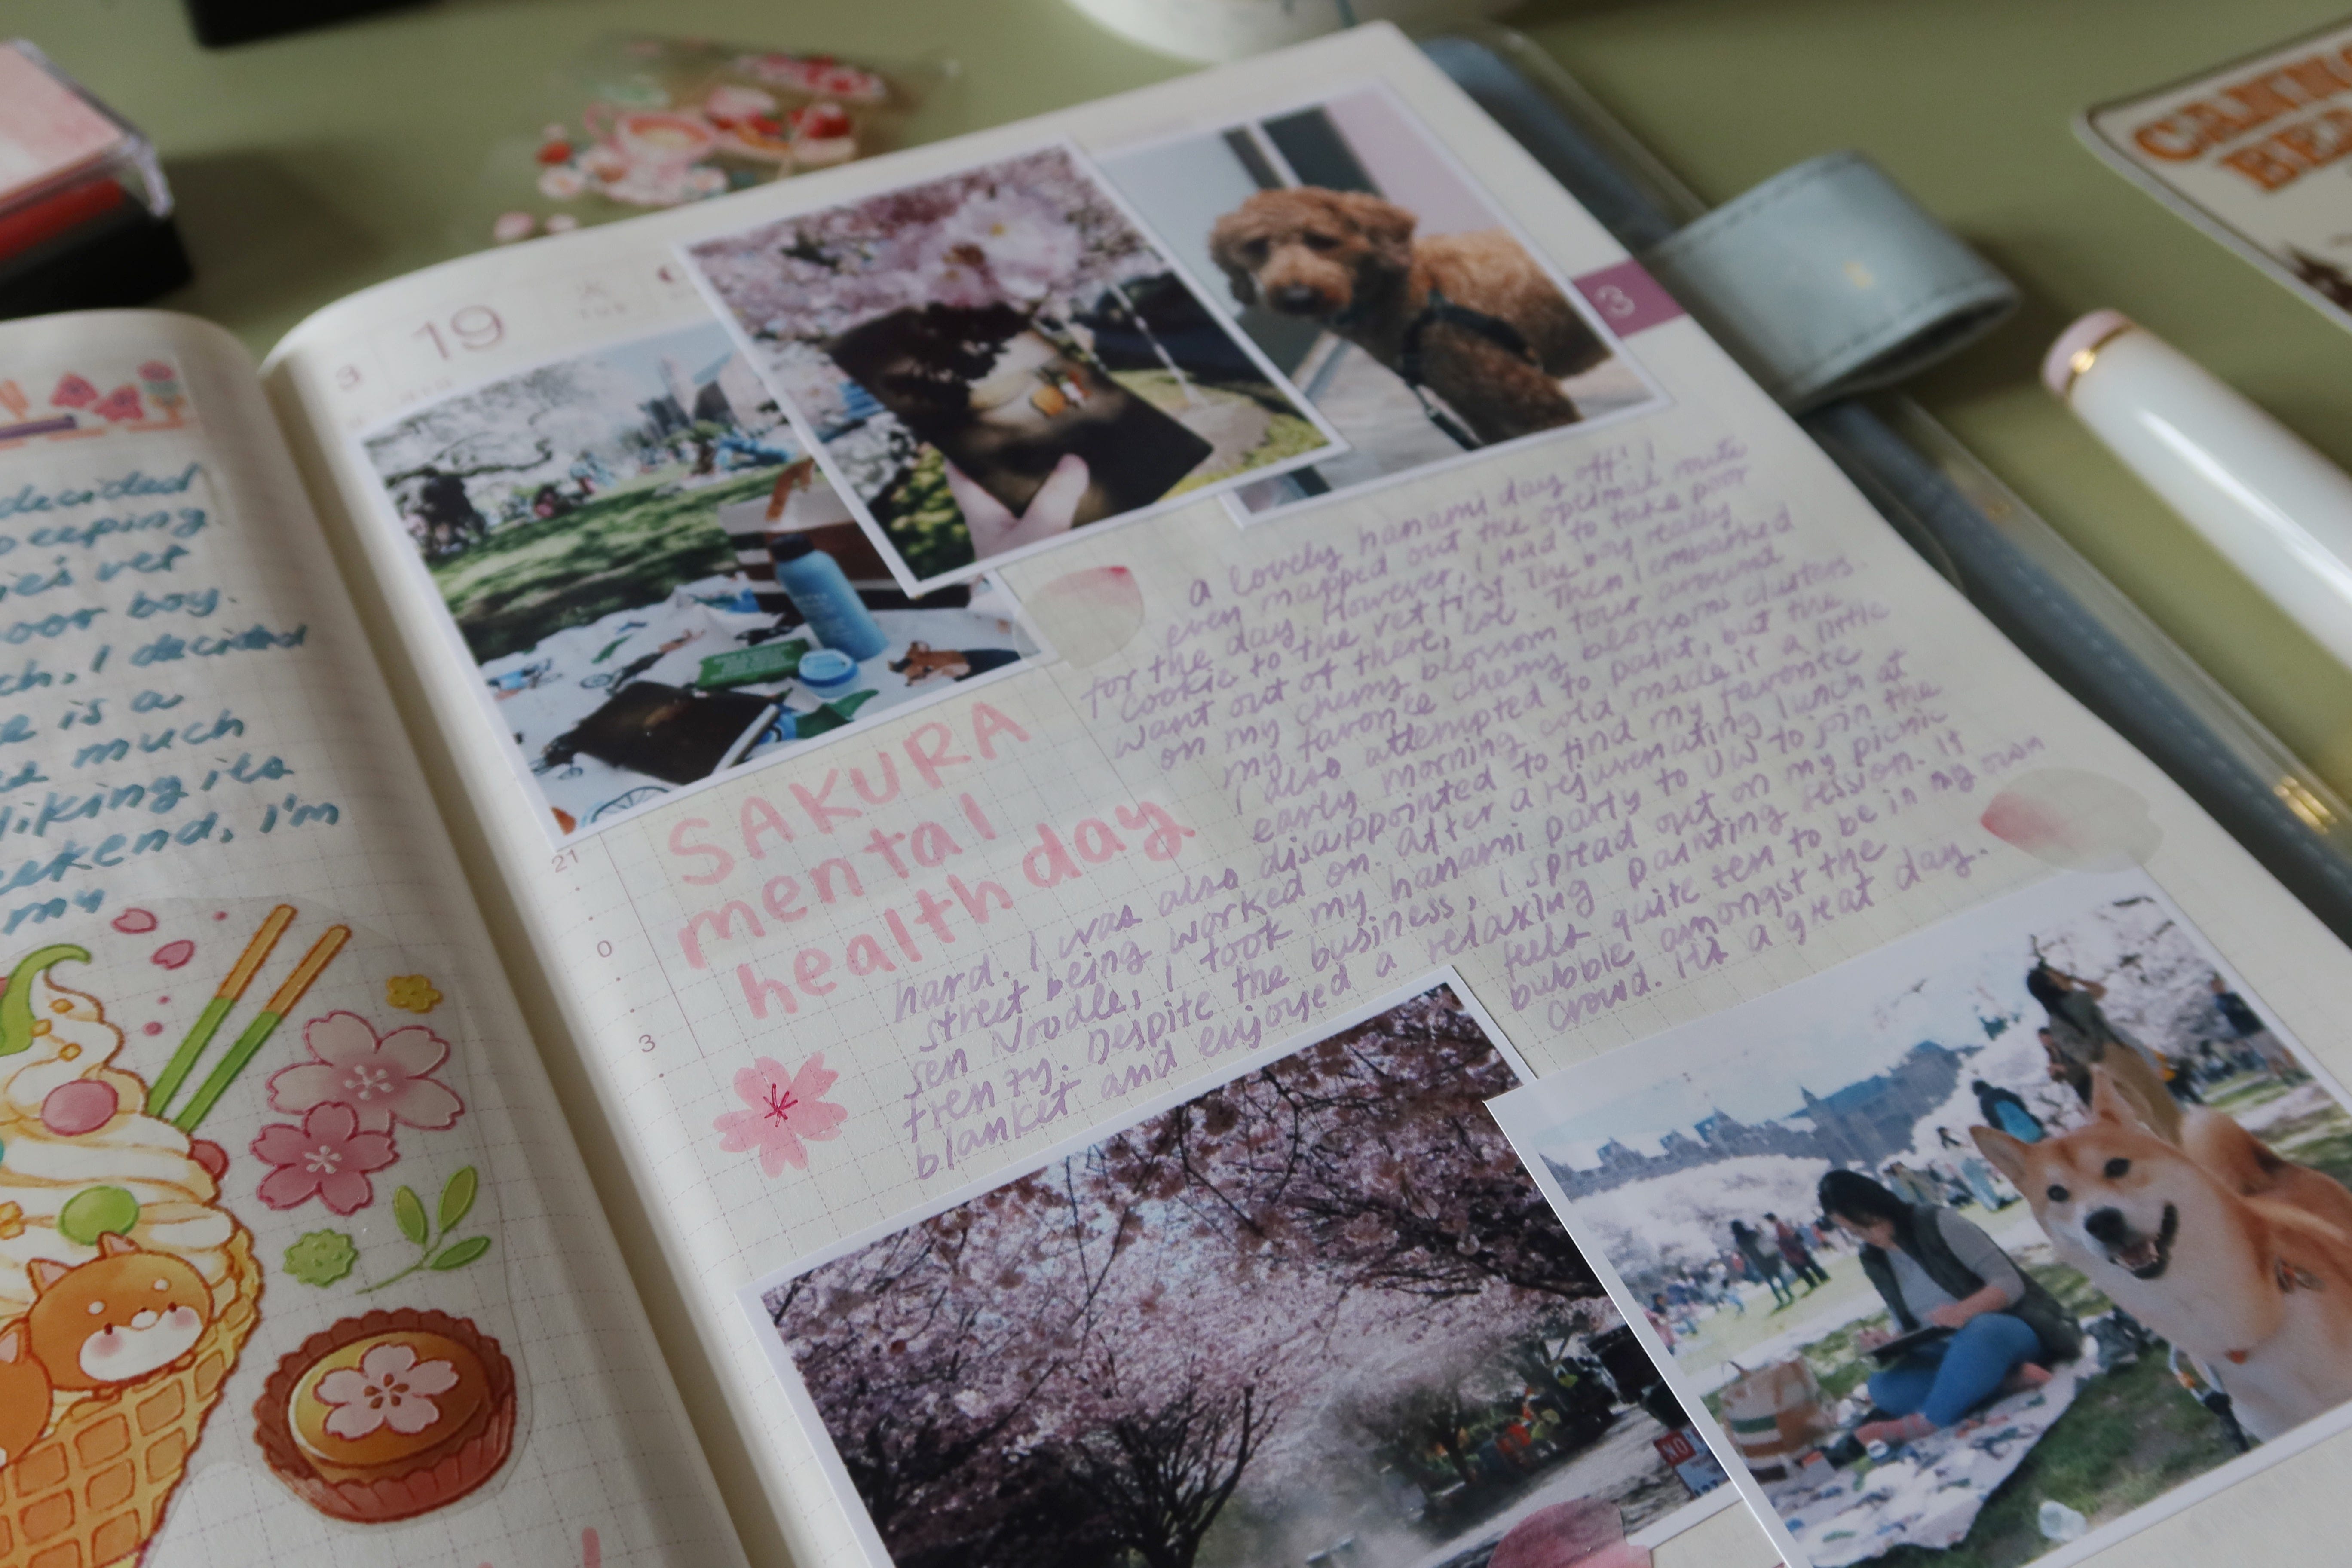 decided
vet
poor boy.
I decided
is a
much
liking its
weekend, I'm
my
3
19
TUE
3
a lovely hanami day off! I
even mapped out the optimal route
for the day. However, I had to take poor
Cookie to the vet first. The boy really
want out of there, lol. Then I embarked
on my cherry blossom tour around
my favorite cherry blossoms clusters.
I also attempted to paint, but the
early morning cold made it a little
hard. I was also disappointed to find my favorite
street being worked on. After a rejuvenating lunch at
Sen Noodle, I took my hanami party to UW to join the
frenzy. Despite the business, I spread out on my picnic
blanket and enjoyed a relaxing painting session. It
feels quite zen to be in my own
bubble amongst the
crowd. It's a great day.
SAKURA
mental
health day
21
0
3
NO